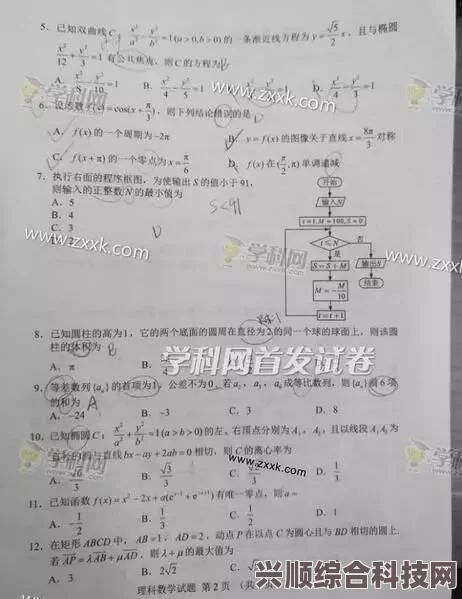 5. 已知双曲线C: x²/a² - y²/b² = 1(a>0,b>0)的一条渐近线方程为y = √5/2 x, 且与椭圆
x²/12 + y²/3 = 1有公共焦点, 则C的方程为
A. x²/8 - y²/10 = 1 B. x²/4 - y²/5 = 1 D. x²/4 - y²/3 = 1
6. 设函数f(x)=cos(x+π/3), 则下列结论错误的是
A. f(x)的一个周期为-2π B. y=f(x)的图像关于直线x=8π/3对称
C. f(x+π)的一个零点为x=π/6 D. f(x)在(π/2,π)单调递减
7. 执行右面的程序框图, 为使输出S的值小于91,
则输入的正整数N的最小值为
A. 5
B. 4
C. 3
S<91
D
开始
输入N
t=1,M=100,S=0
t≤N
否
是
S=S+M
输出S
M=-M/10
结束
t=t+1
8. 已知圆柱的高为1, 它的两个底面的圆周在直径为2的同一个球的球面上, 则该圆
柱的体积为 B
A. π B.
学科网首发试卷
9. 等差数列{aₙ}的首项为1, 公差不为0. 若a₂, a₃, a₆成等比数列, 则{aₙ}前6项
的和为 A
A. -24 B. -3 C. 3 D. 8
10. 已知椭圆C: x²/a² + y²/b² = 1(a>b>0)的左、右顶点分别为A₁, A₂, 且以线段A₁A₂为
直径的圆与直线bx-ay+2ab=0相切, 则C的离心率为
B. √3/3 D. 1/3
11. 已知函数f(x)=x²-2x+a(eˣ⁻¹+e⁻ˣ⁺¹)有唯一零点, 则a=
A. -1/2 B. 1/3 C. 1/2 D. 1
12. 在矩形ABCD中, AB=1, AD=2, 动点P在以点C为圆心且与BD相切的圆上.
若AP=λAB+μAD, 则λ+μ的最大值为
A. 3 B. 2√2
理科数学试题 第2页 (共
学科网
www.zxxk.com
兴顺综合科技网